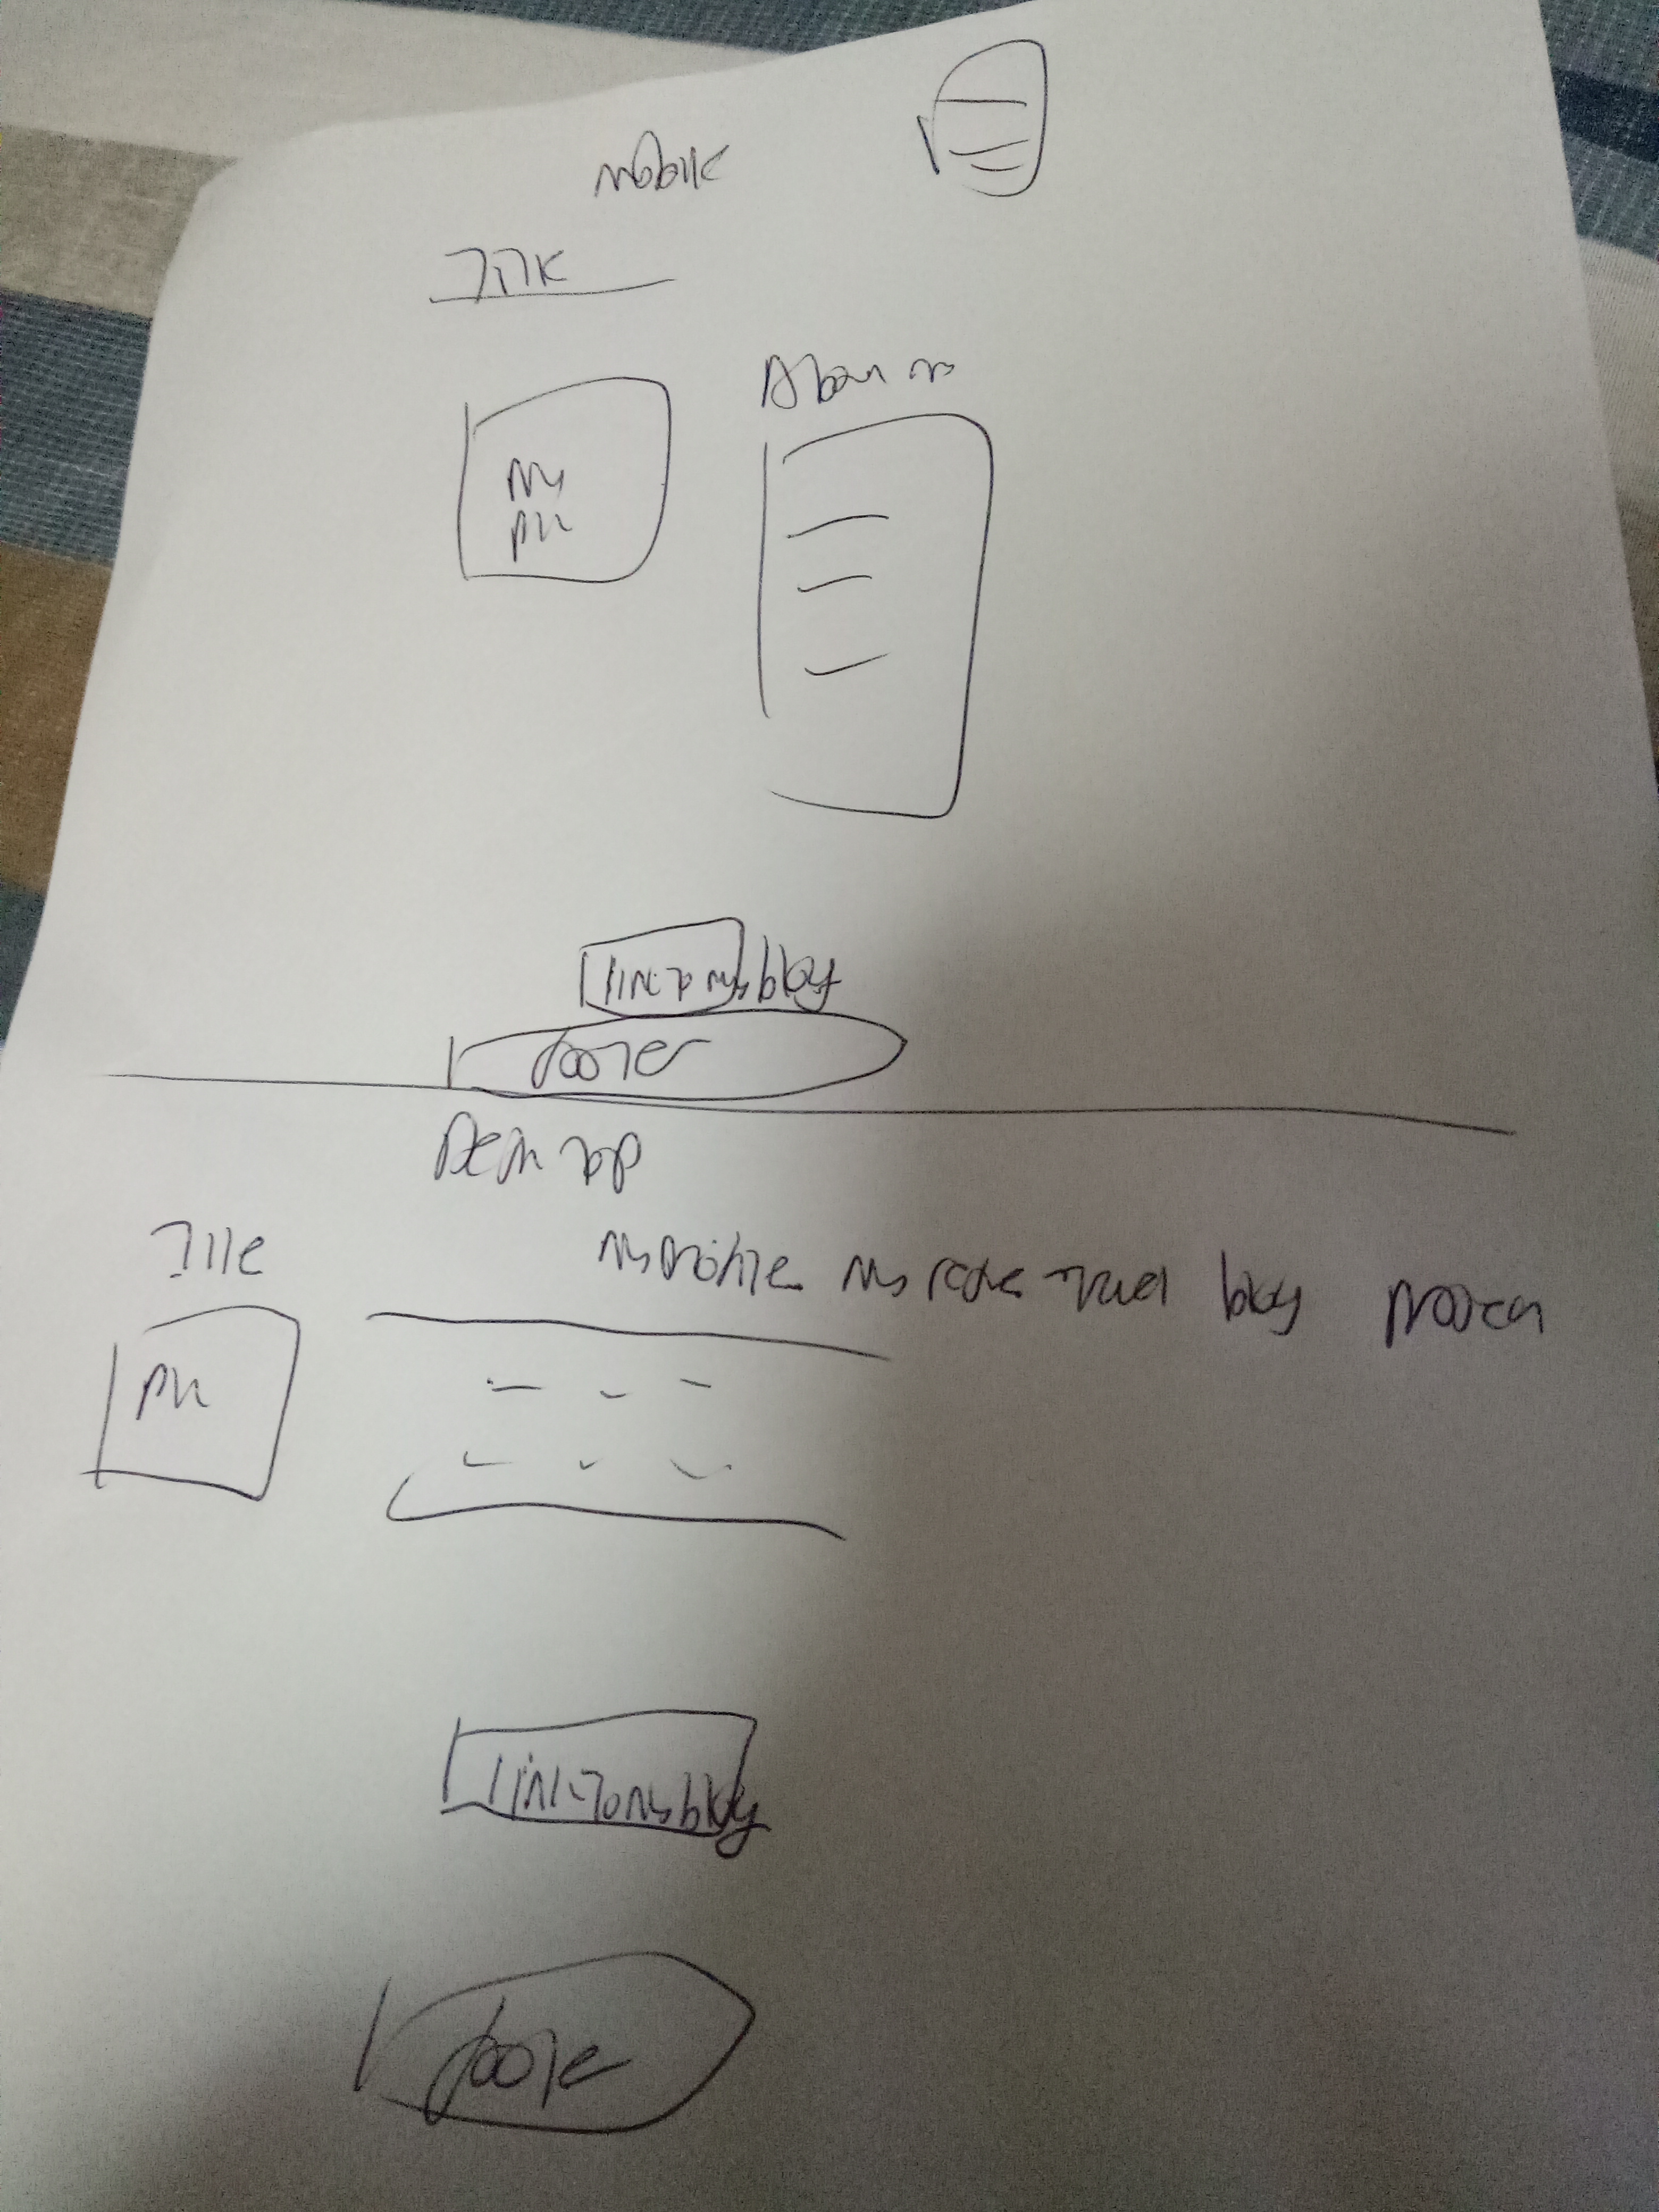 mobile
Title
About me
my
pic
link to my blog
footer
Desktop
Title
my profile my recipe travel blog
pic
link to my blog
footer